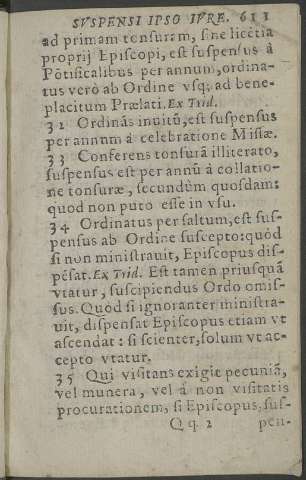 SVSPENSI IPSO IVRE. 611
ad primam tonsuram, sine licẽtia
proprij Episcopi, est suspensus à
Põtificalibus per annum, ordina-
tus verò ab Ordine vsq; ad bene-
placitum Prælati. Ex Trid.
32 Ordinãs inuitũ, est suspensus
per annum à celebratione Missæ.
33 Conferens tonsurã illiterato,
suspensus est per annũ à collatio-
ne tonsuræ, secundùm quosdam:
quod non puto esse in vsu.
34 Ordinatus per saltum, est sus-
pensus ab Ordine suscepto: quòd
si non ministrauit, Episcopus dis-
pẽsat. Ex Trid. Est tamen priusquã
vtatur, suscipiendus Ordo omis-
sus. Quòd si ignoranter ministra-
uit, dispensat Episcopus etiam vt
ascendat: si scienter, solum vt ac-
cepto vtatur.
35 Qui visitans exigit pecuniã,
vel munera, vel à non visitatis
procurationem, si Episcopus, sus-
Q q 2 pen-